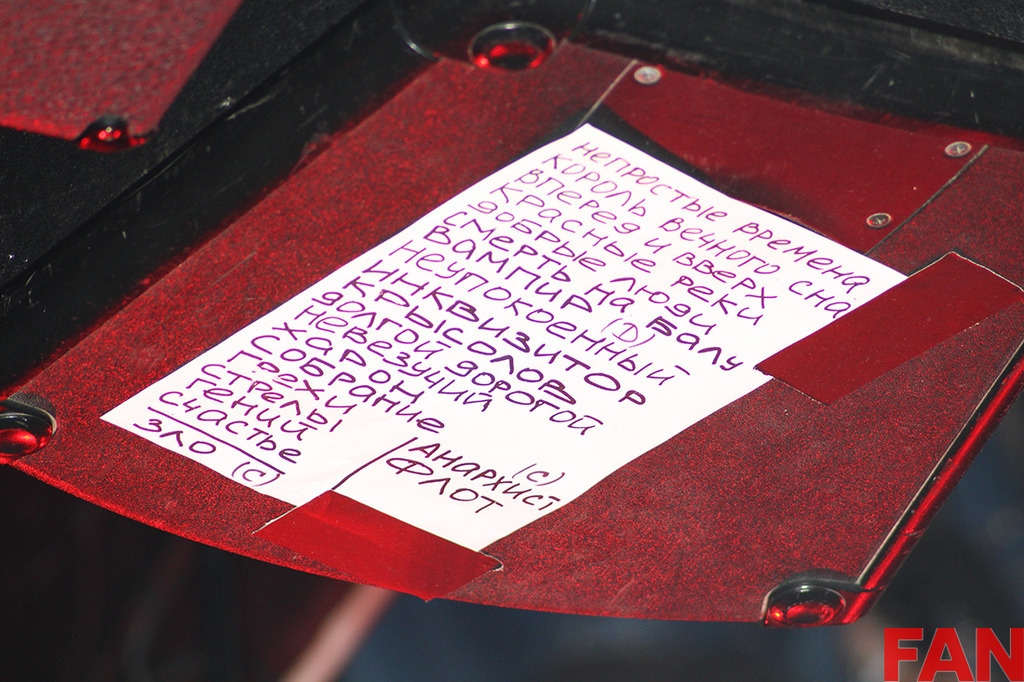 непростые времена
король вечного сна
вперед и вверх
красные реки
добрые люди
смерть на балу
вампир (D)
неупокоенный
инквизитор
крысолов
долгой дорогой
невезучий
Харон
собрание
грехи
стрелы
гений
счастье
зло (С)
(С)
Анархист
Флот
FAN